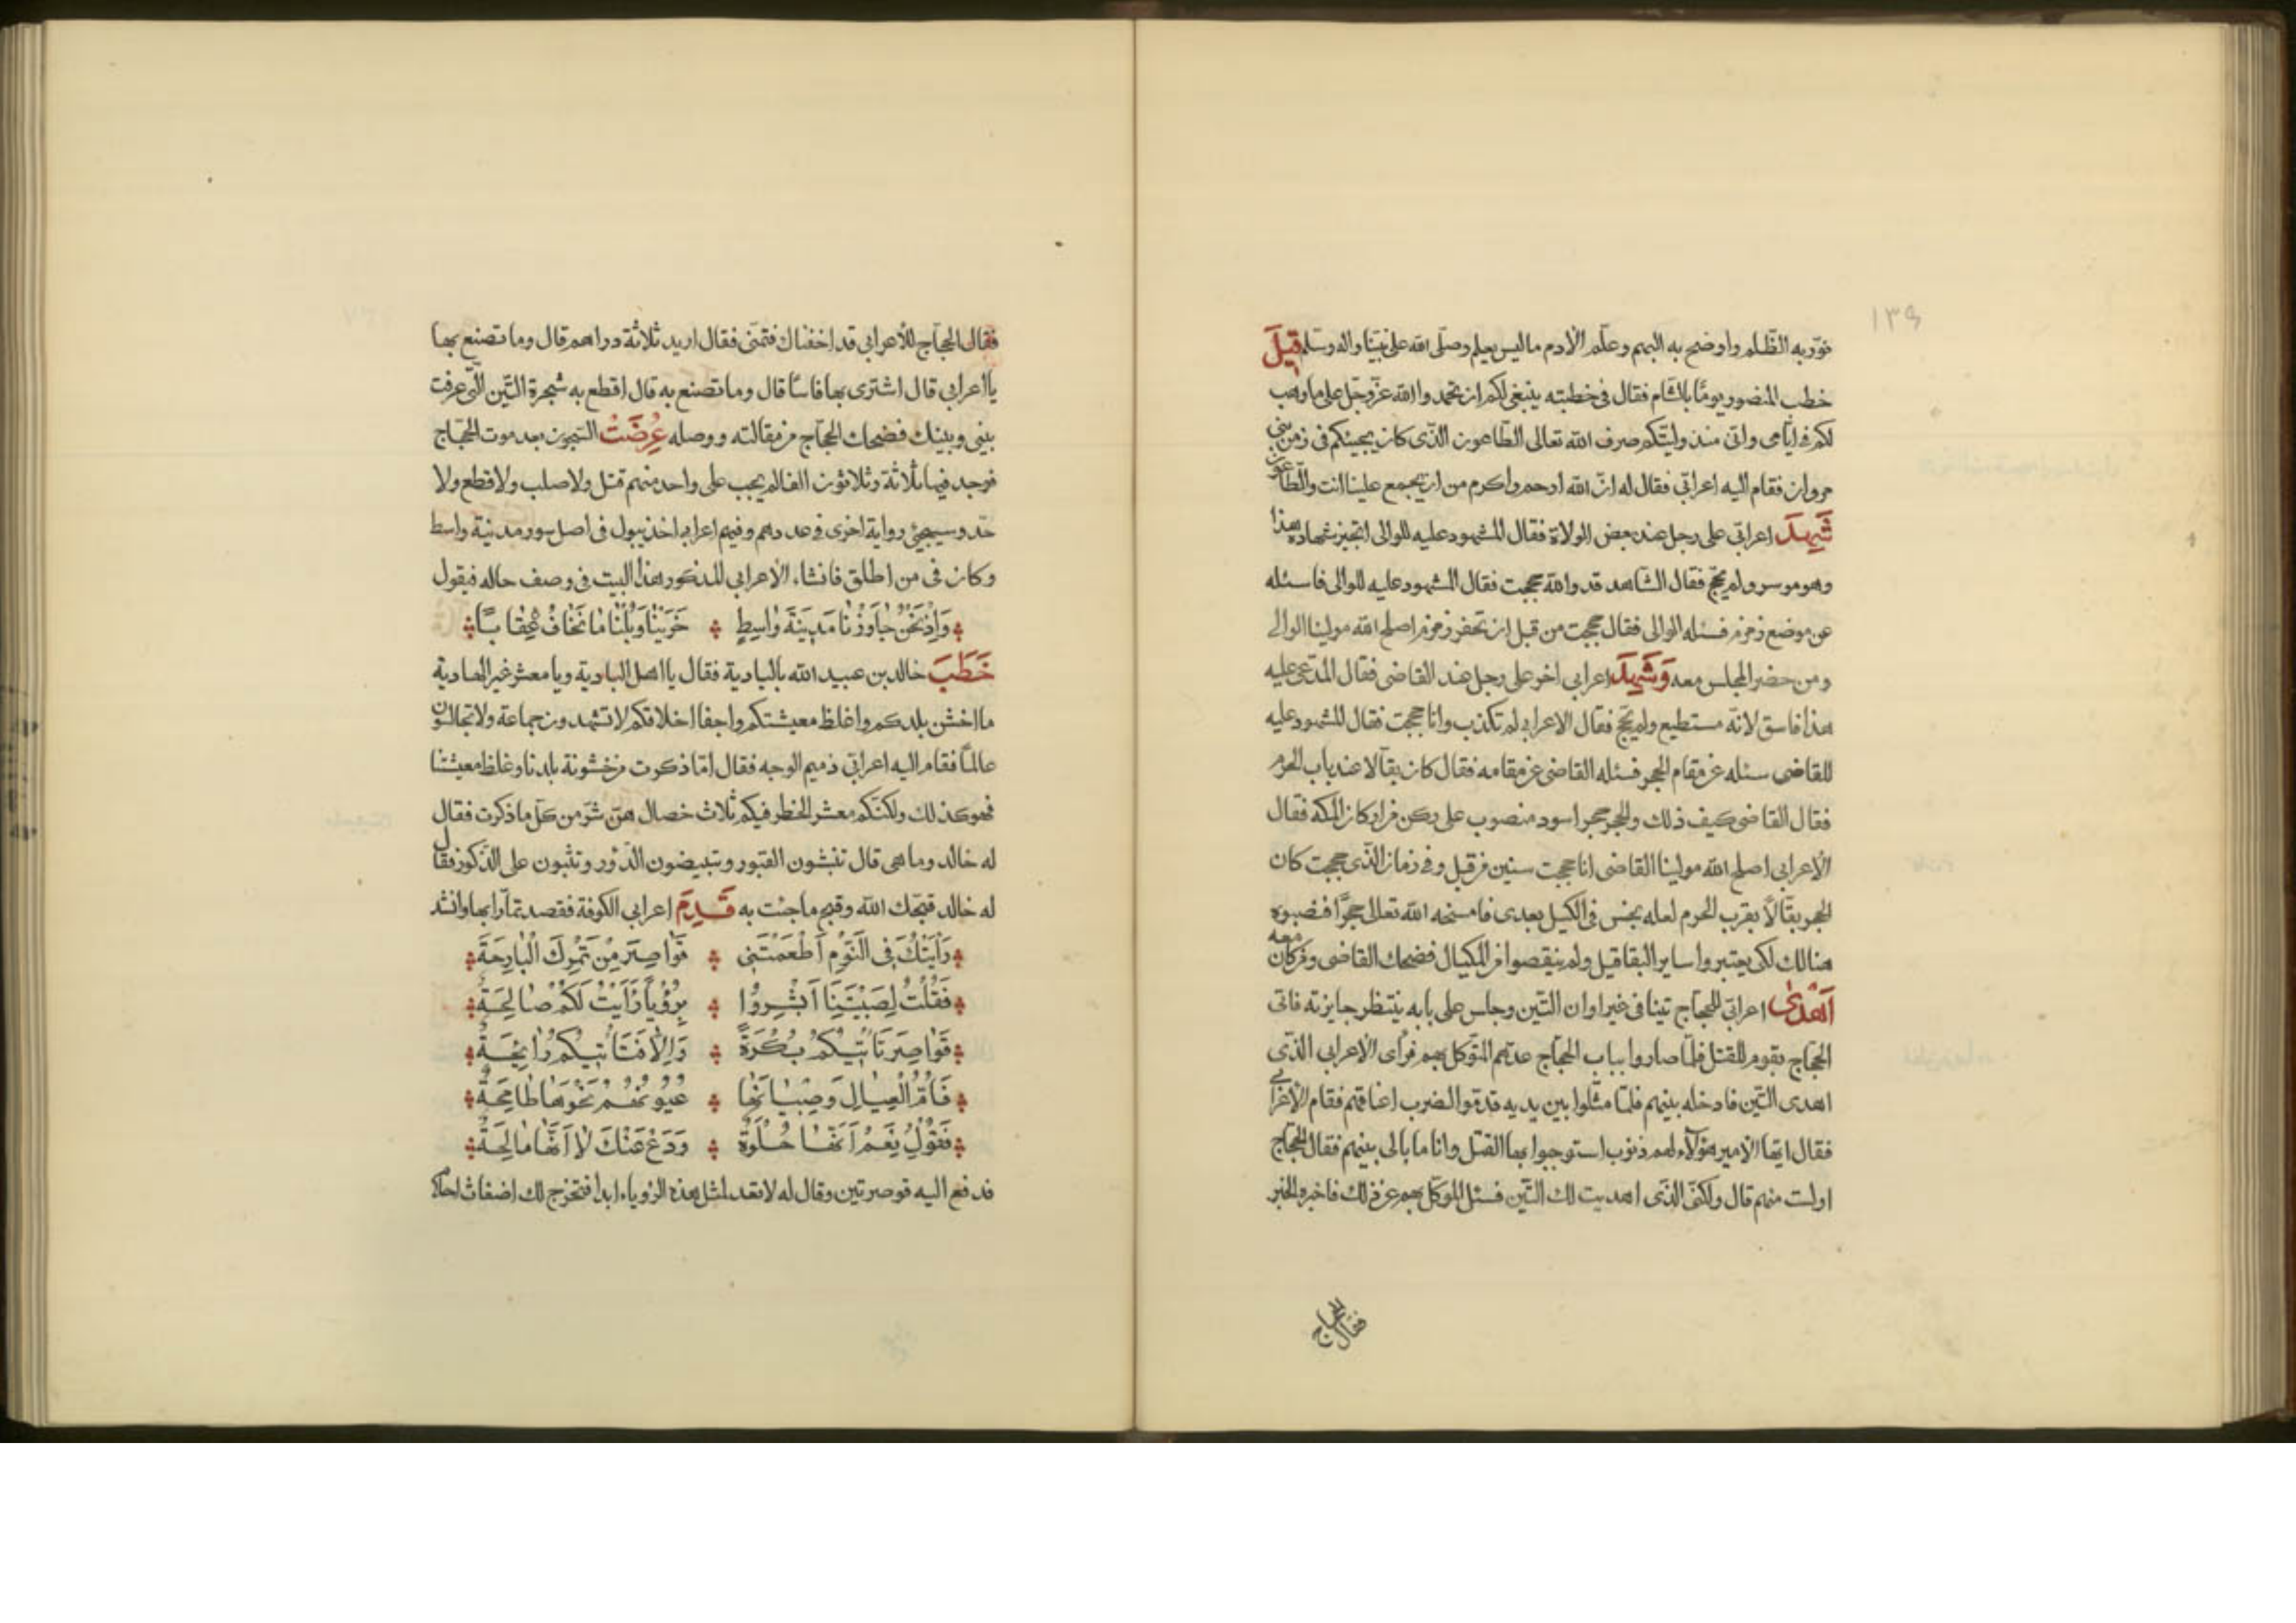 ١٣٩
نوّر به الظّلم واوضح به البهم وعلّم الآدم ماليس يعلم وصلّى الله على نبيّنا واله وسلّم قِيلَ
خطب المنصور يومًا بالشام فقال فى خطبته ينبغى لكم ان تحمدوا الله عزّ وجلّ على ما وهب
لكم فى ايّامى وانّى منذ وليتكم صرف الله تعالى الطّاعون الذّى كان يجيئكم فى زمن بنى
مروان فقام اليه اعرابّى فقال له انّ الله ارحم واكرم من ان يجمع علينا انت والطّاعون
شَهِدَ اعرابّى على رجل عند بعض الولاة فقال المشهود عليه للوالى اتجيز شهادة هذا
وهو موسر ولم يحّج فقال الشّاهد قد والله حججت فقال المشهود عليه للوالى فاسئله
عن موضع زمزم فسئله الوالى فقال حججت من قبل ان تحفر زمزم اصلح الله مولينا الوالى
ومن حضر المجلس معه وَشَهِدَ اعرابى اخر على رجل عند القاضى فقال المدّعى عليه
هذا فاسق لانّه مستطيع ولم يحّج فقال الاعرابى لم تكذب وانا حججت فقال المشهود عليه
للقاضى سئله عن مقام الحجر فسئله القاضى عن مقامه فقال كان بقّالا عند باب الحرم
فقال القاضى كيف ذلك والحجر حجر اسود منصوب على ركن من اركان المكه فقال
الاعرابى اصلح الله مولينا القاضى انا حججت سنين من قبل وفى زمان الذّى حججت كان
الحجر بقّالاً بقرب الحرم لعله بخس فى الكيل بعدى فامسخه الله تعالى حجرًا فنصبوه
هنالك لكى يعتبروا ساير البقاقيل ولم ينقصوا من المكيال فضحك القاضى ومن كان معه
اَهْدىٰ اعرابّى للحجاج تينا فى غير اوان التّين وجلس على بابه ينتظر جايزته فاتى
الحجّاج بقوم للقتل فلمّا صاروا بباب الحجاج عدّهم المتوكل بهم فرأى الاعرابى الذّى
اهدى التّين فادخله بينهم فلمّا مثّلوا بين يديه قدّموا لضرب اعناقهم فقام الاعرابى
فقال ايّها الامير هؤلآء لهم ذنوب استوجبوا بها القتل وانا ما بالى بينهم فقال الحجاج
اولست منهم قال ولكنّى الذّى اهديت لك التّين فسئل الموكّل بهم عن ذلك فاخبره الخبر
فقال الحجاج
فقال الحجاج للأعرابى قد اخفناك فتمنّى فقال اريد ثلاثة دراهم قال وما تصنع بها
يا اعرابى قال اشترى بها فاسًا قال وما تصنع به قال اقطع به شجرة التّين الّتى عرفت
بينى وبينك فضحك الحجّاج من مقالته ووصله عُرِضَتْ السّجون بعد موت الحجّاج
فوجد فيها ثلاثة وثلاثون الفا لم يجب على واحد منهم قتل ولا صلب ولا قطع ولا
حدّ وسيجيئ رواية اخرى فى عددهم وفيهم اعرابى اخذ يبول فى اصل سور مدينة واسط
وكان فى من اطلق فانشاء الاعرابى المذكور هذا البيت فى وصف حاله فيقول
وَاِذْ نَحْنُ جٰاوَزْنٰا مَدِينَةَ وٰاسِطٍ ٭ خَرَيْنٰا وَبُلْنٰا مٰا نَخٰافُ عِقٰابًا
خَطَبَ خالد بن عبيد الله بالبادية فقال يا اهل البادية ويا معشر غير الهادية
ما اخشن بلدكم واغلظ معيشتكم واجفا اخلاقكم لا تشهدون جماعة ولا تجالسون
عالماً فقام اليه اعرابّى ذميم الوجه فقال امّا ذكرت من خشونة بلدنا وغلظ معيشتنا
فهو كذلك ولكنّكم معشر الحظر فيكم ثلاث خصال هنّ شرّ من كلّ ما ذكرت فقال
له خالد وما هى قال تنبشون القبور وتبيضون الدّور وتثبون على الذّكور فقال
له خالد قبّحك الله وقبح ما جئت به قَدِمَ اعرابى الكوفة فقصد تمّارا بها وانشد
رَاَيْتُكَ فِى النَّوْمِ اَطْعَمْتَنِى ٭ قَوٰاصِرَ مِنْ تَمْرِكَ الْبٰارِحَةَ
فَقُلْتُ لِصَبْيَتِنٰا اَبْشِرُوْا ٭ بِرُؤْيًا رَاَيْتُ لَكُمْ صٰالِحَةُ
قَوٰاصِرَ تَاْتِيكُمْ بُكْرَةً ٭ وَاِلّٰا فَتَاْتِيكُمْ رٰائِحَةُ
فَاُمُّ الْعِيٰالِ وَصِبْيٰانُهٰا ٭ عُيُونُهُمْ نَحْوَهٰا طٰامِحَةُ
فَقُوْلُ نَعَمْ اَنَّهٰا حُلْوَةٌ ٭ وَدَعْ عَنْكَ لٰا اَنَّهٰا مٰالِحَةُ
فدفع اليه قوصرتين وقال له لا تعد لمثل هذه الرّوياء ابدا فتخرج لك اضغاث احلام